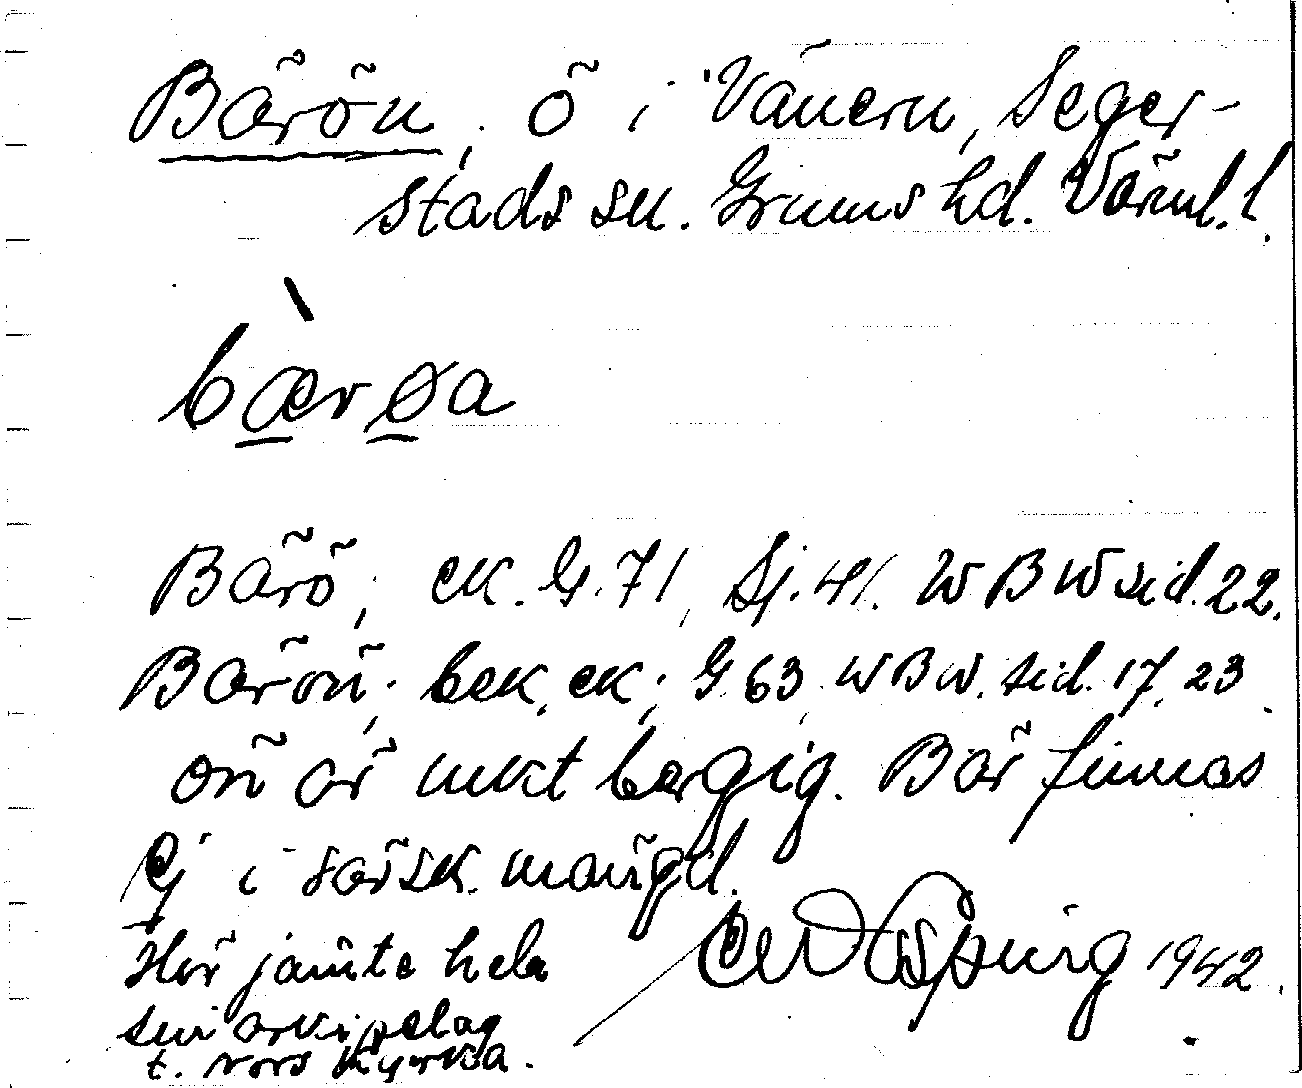 Bärön, ö i Vänern, Seger-
stads sn. Grums hd. Värml. l.
bærøa
Bärö, ek. G. 71, Sj. 41. WBW sid. 22.
Bärön, bek, ek; G 63 WBW. sid. 17, 23
ön är mkt bergig. Bär finnas
ej i särsk. mängd.
Hör jämte hela
sin arkipelag
t. Nors kyrka.
1942.